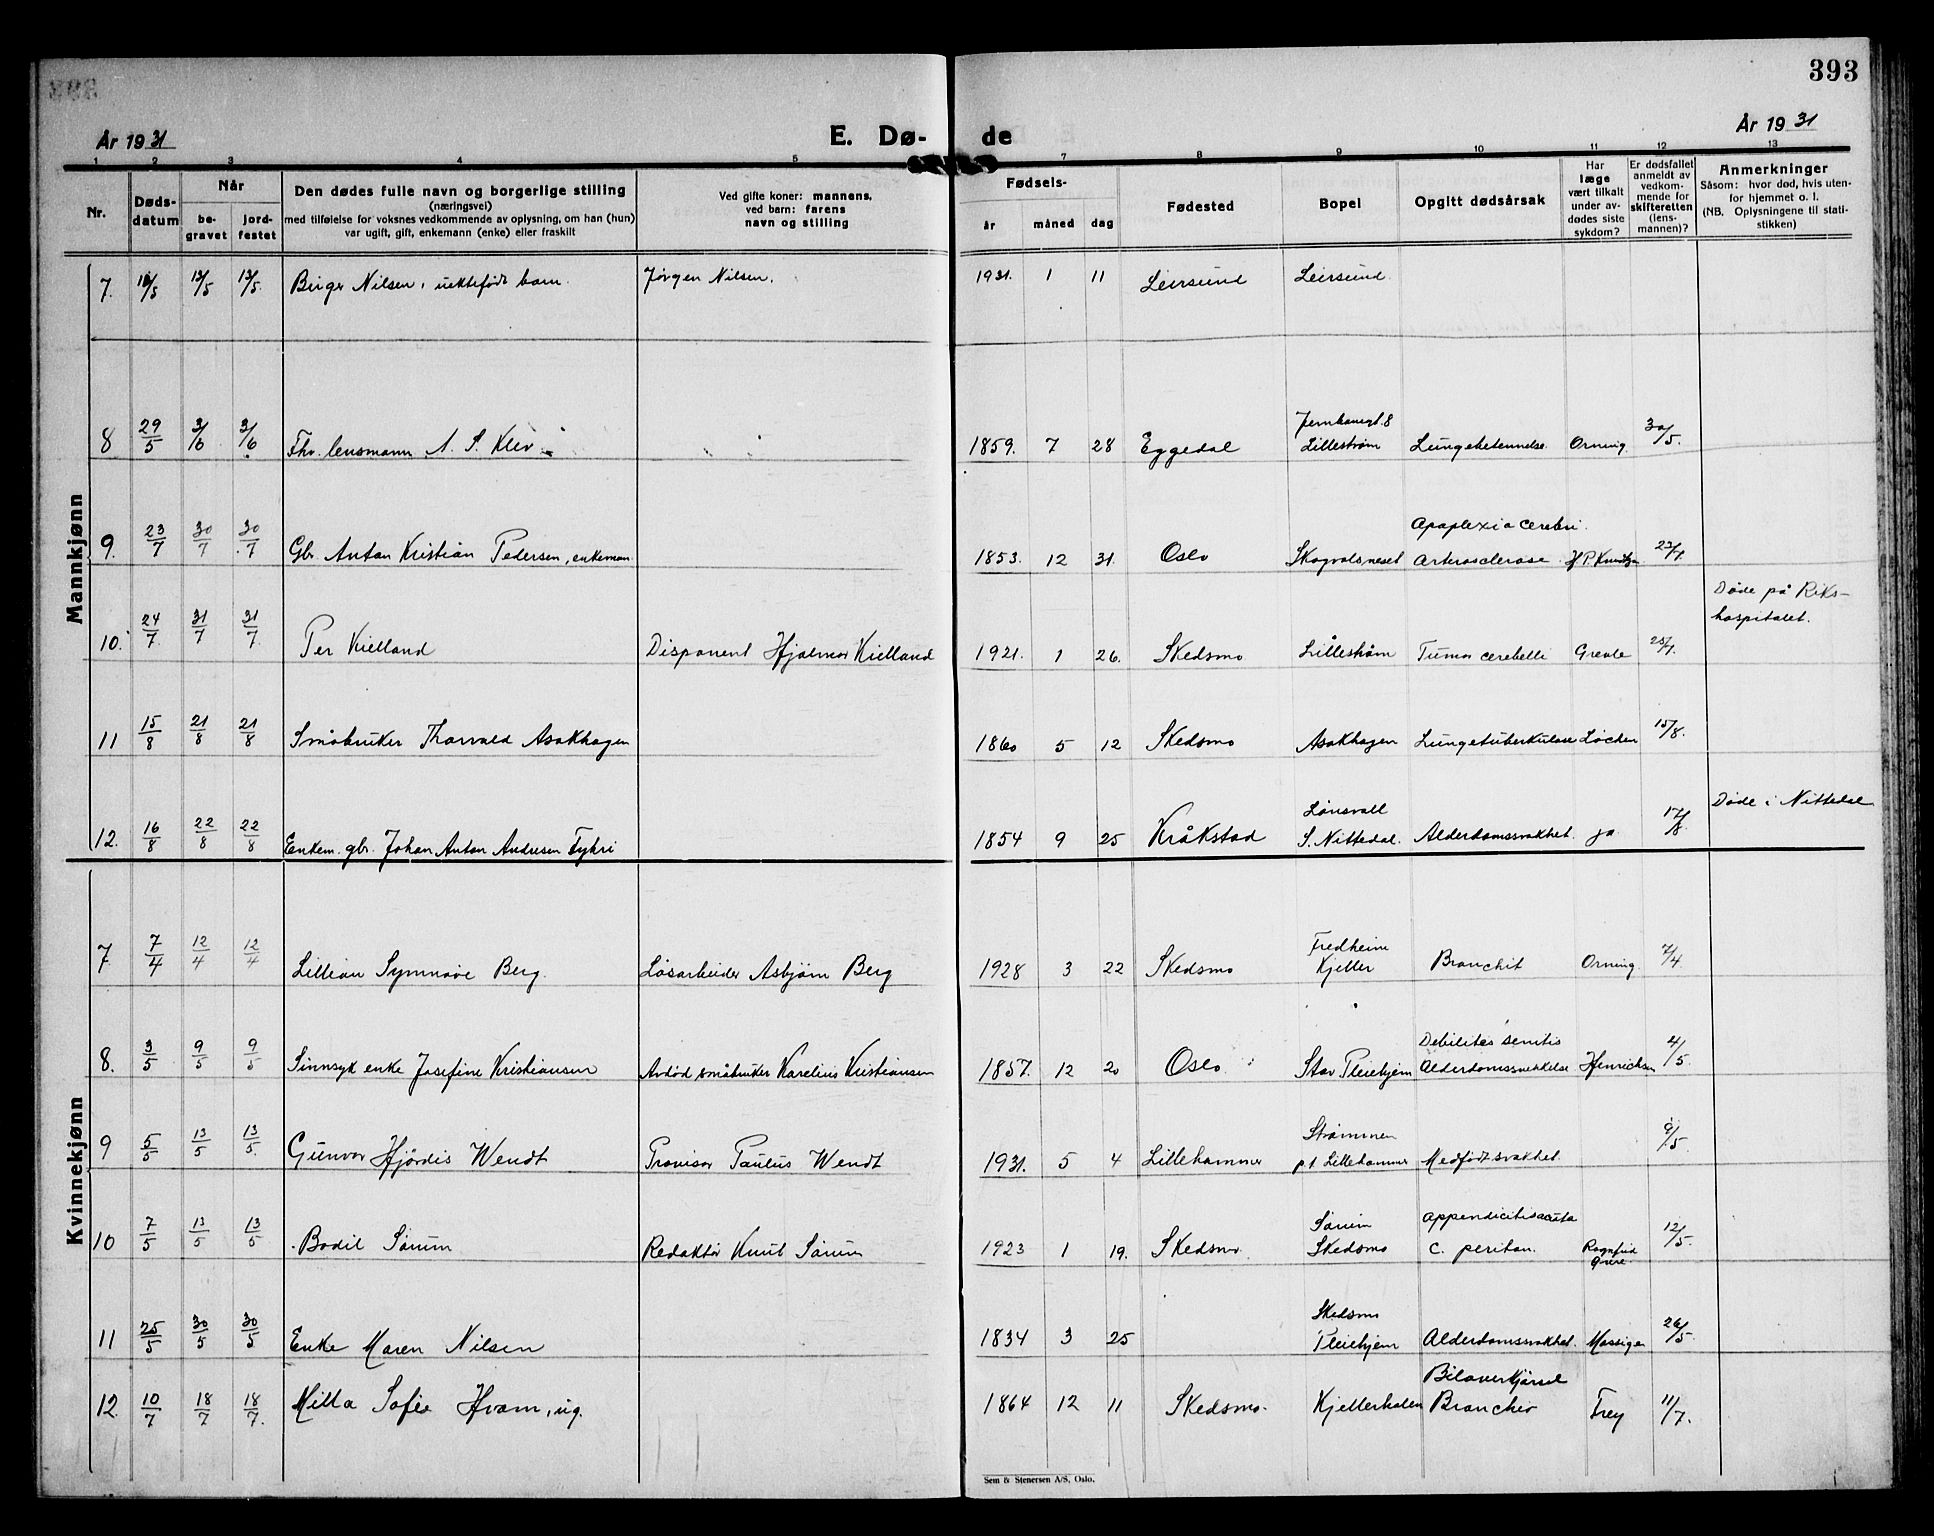 393
År 1931
E. Dø-
de
År 1931
1 2 3 4 5 7 8 9 10 11 12 13
Nr.
Døds-
datum
Når
be-
gravet
jord-
festet
Den dødes fulle navn og borgerlige stilling
(næringsvei)
med tilføielse for voksnes vedkommende av oplysning, om han (hun)
var ugift, gift, enkemann (enke) eller fraskilt
Ved gifte koner: mannens,
ved barn: farens
navn og stilling
Fødsels-
år måned dag
Fødested
Bopel
Opgitt dødsårsak
Har
læge
vært tilkalt
under av-
dødes siste
sykdom?
Er dødsfallet
anmeldt av
vedkom-
mende for
skifteretten
(lens-
mannen)?
Anmerkninger
Såsom: hvor død, hvis uten-
for hjemmet o. l.
(NB. Oplysningene til stati-
stikken)
Mannkjønn
7. 10/5 13/5 13/5. Birger Nilsen, uektefødt barn. Jörgen Nilsen. 1931. 1 11 Leirsund Leirsund.
Jernbanegt. 8
8 29/5 3/6 3/6 Fhv. lensmann A. S. Klev 1859. 7 28 Eggedal Lillestrøm Lungebetennelse Orning 30/5.
Apoplexia cerebri.
9. 23/7 30/7 30/7 Gbr. Anton Kristian Pedersen, enkeman 1853. 12 31. Oslo Skogvolsneset Arterosclerose 23/7.
Døde på Riks-
hospitalet.
10. 24/7 31/7 31/7. Per Kielland Disponent Hjalmar Kielland 1921. 1 26. Skedsmo Lillestrøm Tumor cerebelli 25/7.
11 15/8 21/8 21/8 Småbruker Thorvald Asakhagen 1860 5 12 Skedsmo Asakhagen Lungetuberkulose Løchen 15/8.
Døde i Nittedal
12. 16/8 22/8 22/8 Enkem. gbr. Johan Anton Andresen Fyhri 1854 9 25 Kråkstad S. Nittedal. Alderdomssvakhet. ja 17/8.
Kvinnekjønn
Fredheim
7 7/4 12/4 12/4 Lillian Synnøve Berg. Løsarbeider Asbjørn Berg 1928 3 22 Skedsmo Kjeller Bronchit Orning. 7/4
Debilitas senilis
8. 3/5 9/5 9/5 Sinnsyk enke Josefine Kristiansen Avdød småbruker Karelius Kristiansen 1857. 12 20 Oslo. Stav Pleiehjem Alderdomssvekkelse Hinrichsen 4/5.
Strømmen
9 5/5 13/5 13/5. Gunvor Hjördis Wendt Provisor Paulus Wendt 1931. 5 4 Lillehammer p.t. Lillehammer Medfødt svakhet. 9/5
Sørum Appendicitis acuta
10 7/5 13/5 13/5 Bodil Sørum Redaktør Knut Sørum 1923 1 19. Skedsmo. Skedsmo c. periton. Ragnfrid 12/5.
Skedsmo
11 25/5 30/5 30/5 Enke Maren Nilsen 1834 3 25 Pleiehjem Alderdomssvakhet. 26/5.
Biloverkjørsel
12. 10/7 18/7 18/7. Milla Sofie Hvam, ug. 1864 12 11 Skedsmo. Kjellerholen Frey 11/7.
Sem & Stenersen A/S, Oslo.